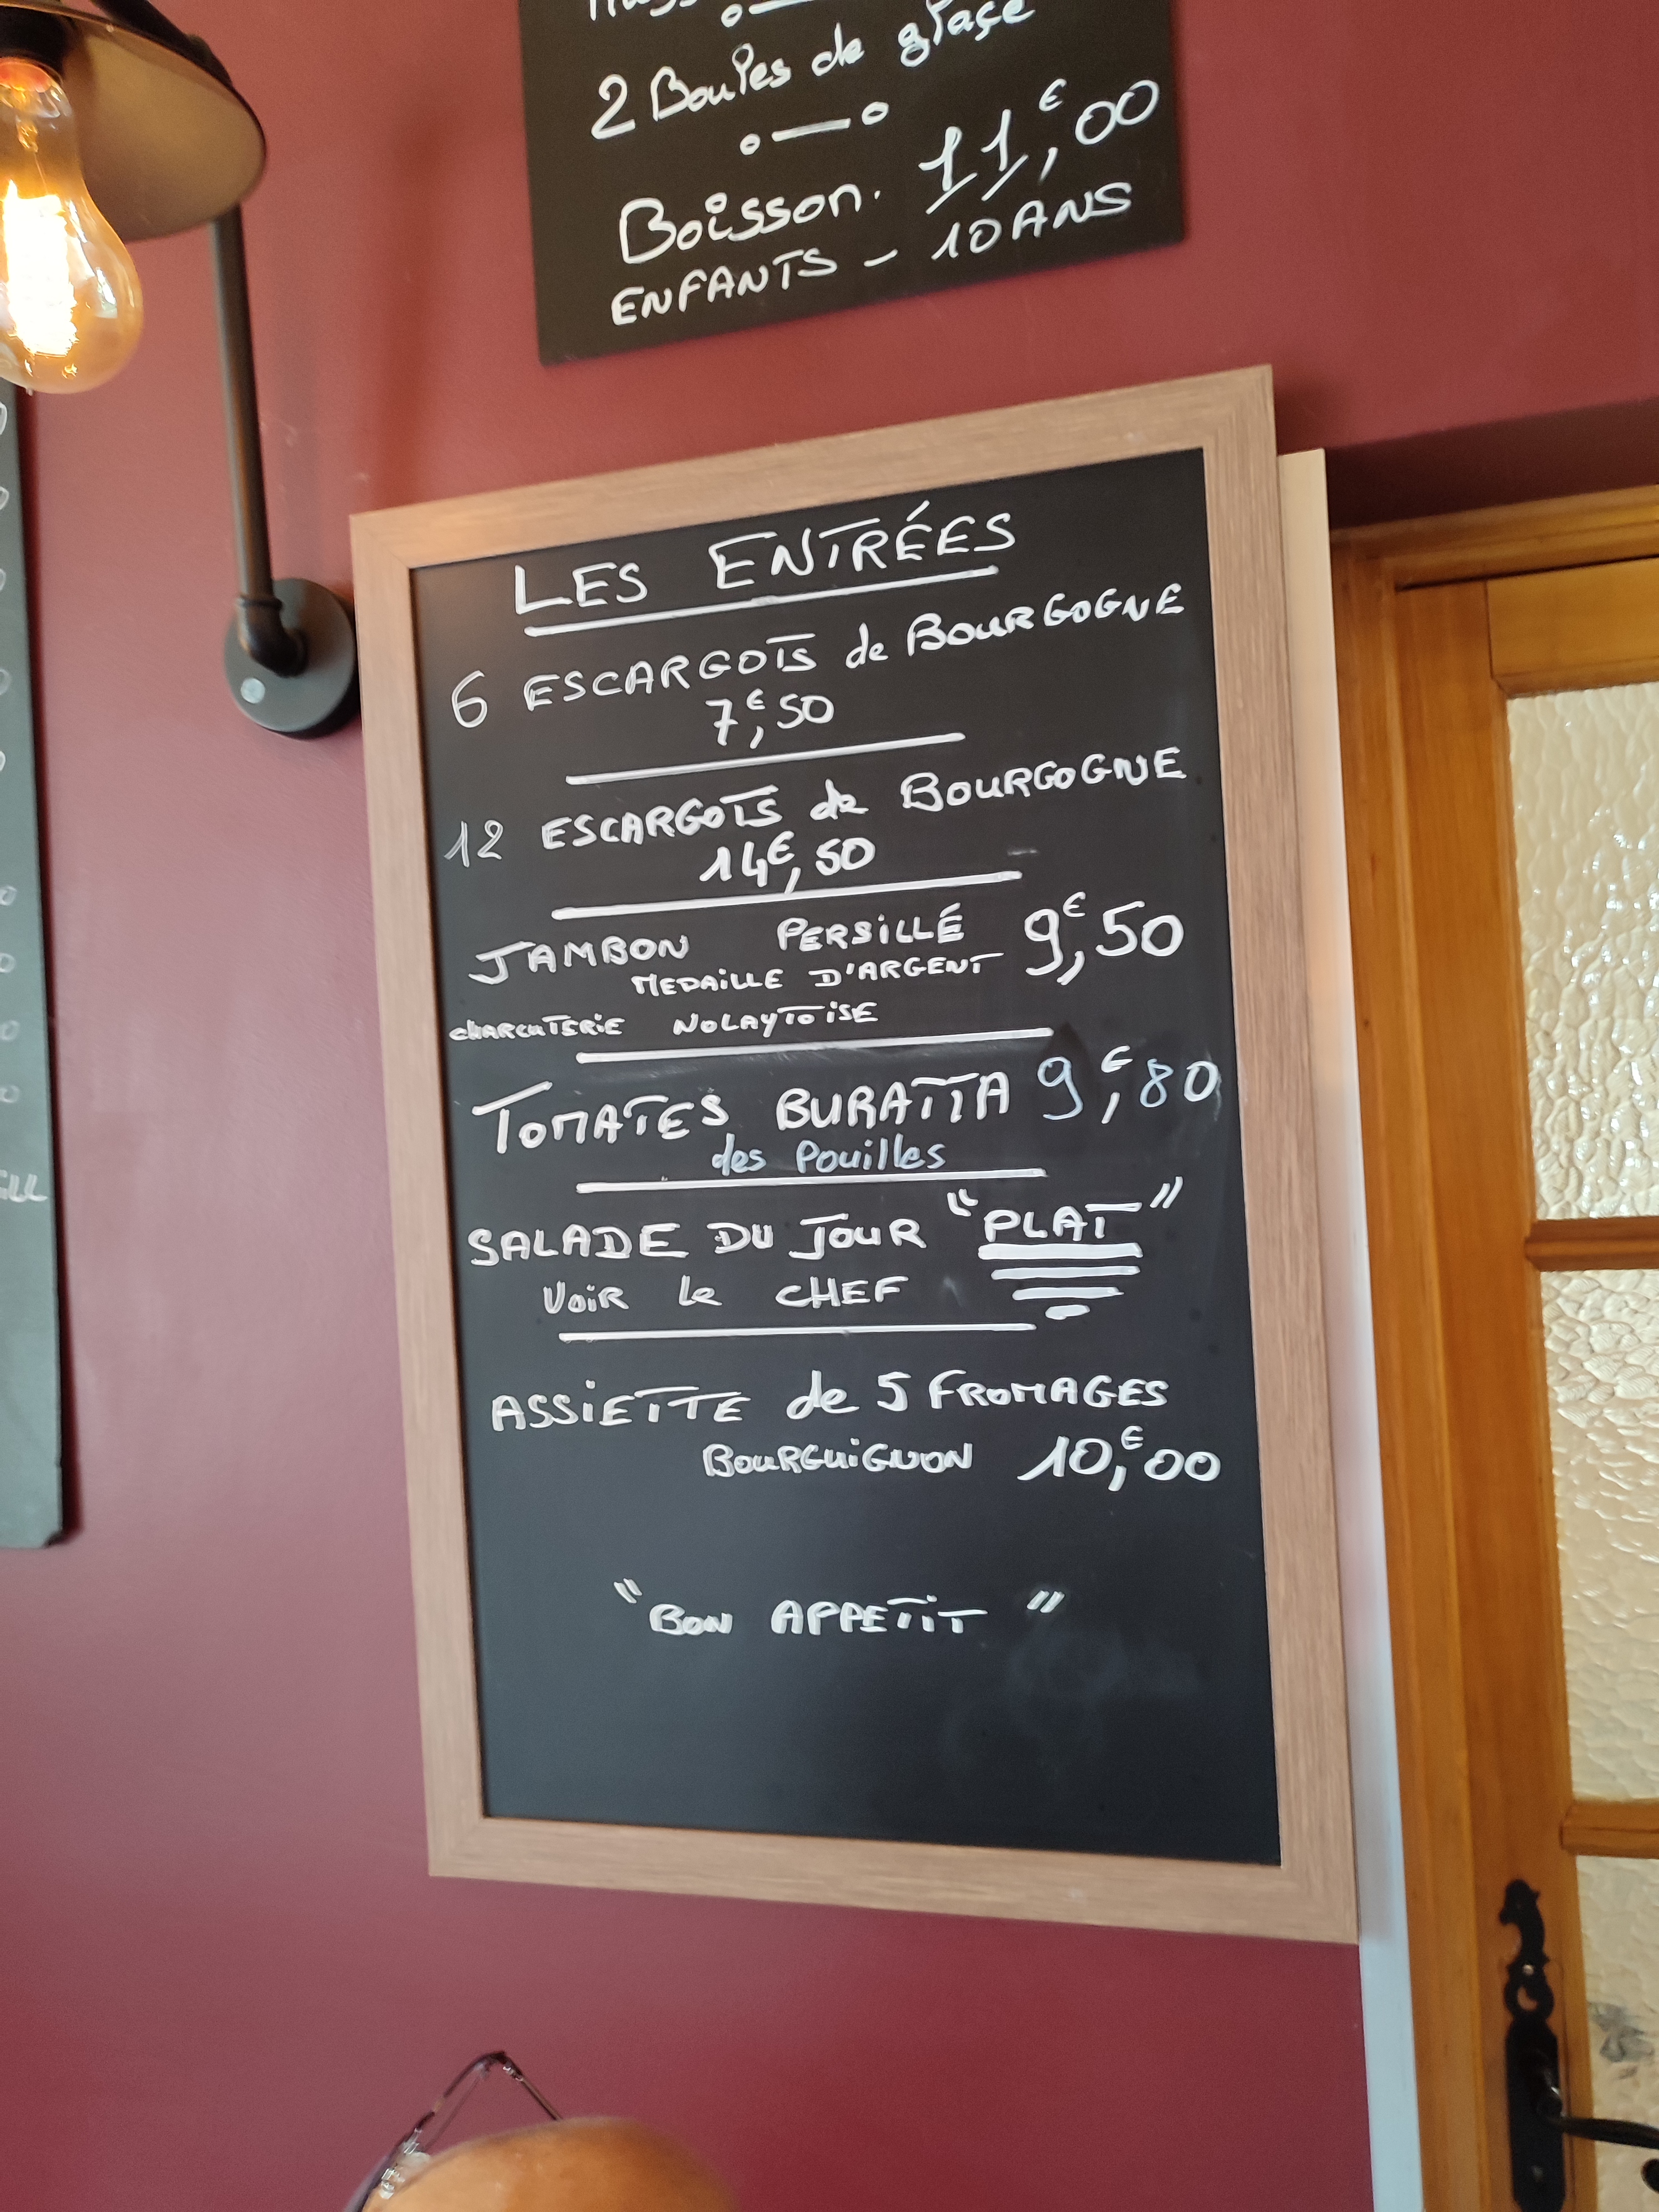 2 Boules de glaçe
Boisson. 11€,00
ENFANTS - 10 ANS
LES ENTRÉES
6 ESCARGOTS de BOURGOGNE
7€,50
12 ESCARGOTS de BOURGOGNE
14€,50
JAMBON PERSILLÉ 9€,50
MEDAILLE D'ARGENT
CHARCUTERIE NOLAYTOISE
TOMATES BURATTA 9€,80
des Pouilles
SALADE DU JOUR "PLAT"
VOIR le CHEF
ASSIETTE de 5 FROMAGES
BOURGUIGNON 10€,00
"BON APPETIT"